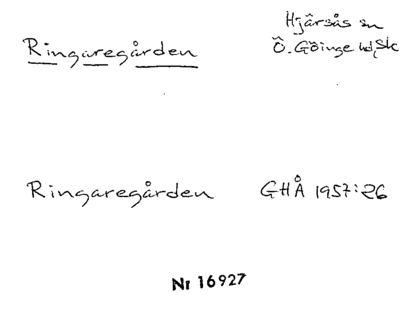 Ringaregården
Hjärsås sn
Ö. Göinge hd, Sk
Ringaregården GHÅ 1957:26
Nr 16927